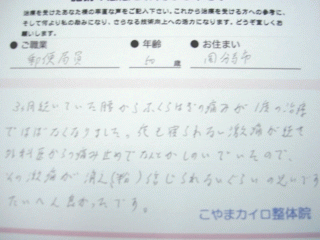 治療を受けたあなた様の率直な声をご記入下さい。これから治療を受ける方への参考に、
そして何より私の励みになり、さらなる技術向上への活力になります。どうぞ宜しくお
願いします。
●ご職業 ●年齢 ●お住まい
郵便局員 50 歳 国分寺市
3ヶ月近いていた腰からふくらはぎの痛みが1度の治療
ではぼなくなりました。夜も寝られない激痛が近き
外科医からの痛み止めでなんとかしのいでいたので、
その激痛が消え 信じられないぐらいの思いです
たいへん良かったです。
こやまカイロ整体院